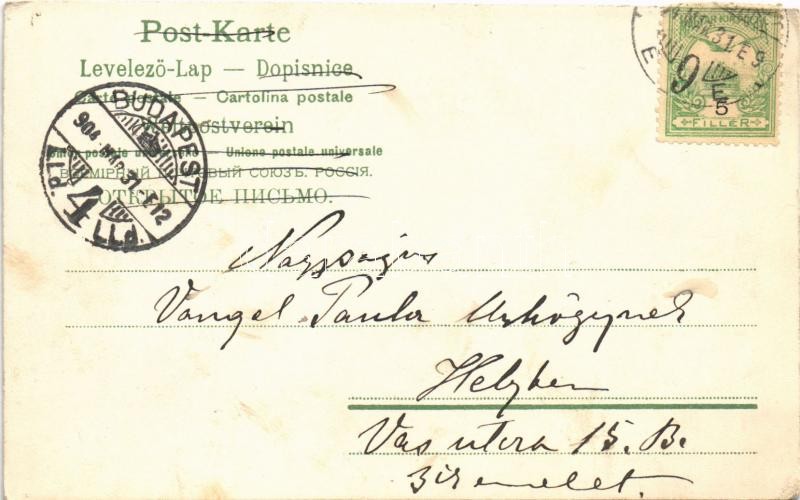 Post-Karte
Levelező-Lap — Dopisnice
Carte postale — Cartolina postale
Weltpostverein
Union postale universelle — Unione postale universale
ВСЕМІРНЫЙ ПОЧТОВЫЙ СОЮЗЪ. РОССІЯ.
ОТКРЫТОЕ ПИСЬМО.
BUDAPEST
904 MAR. 31. E12
4
FILLÉR
5
31 E 9
Nagyságos
Vangel Paula Urhőgynek
Helyben
Vas utcza 15. B.
emelet.